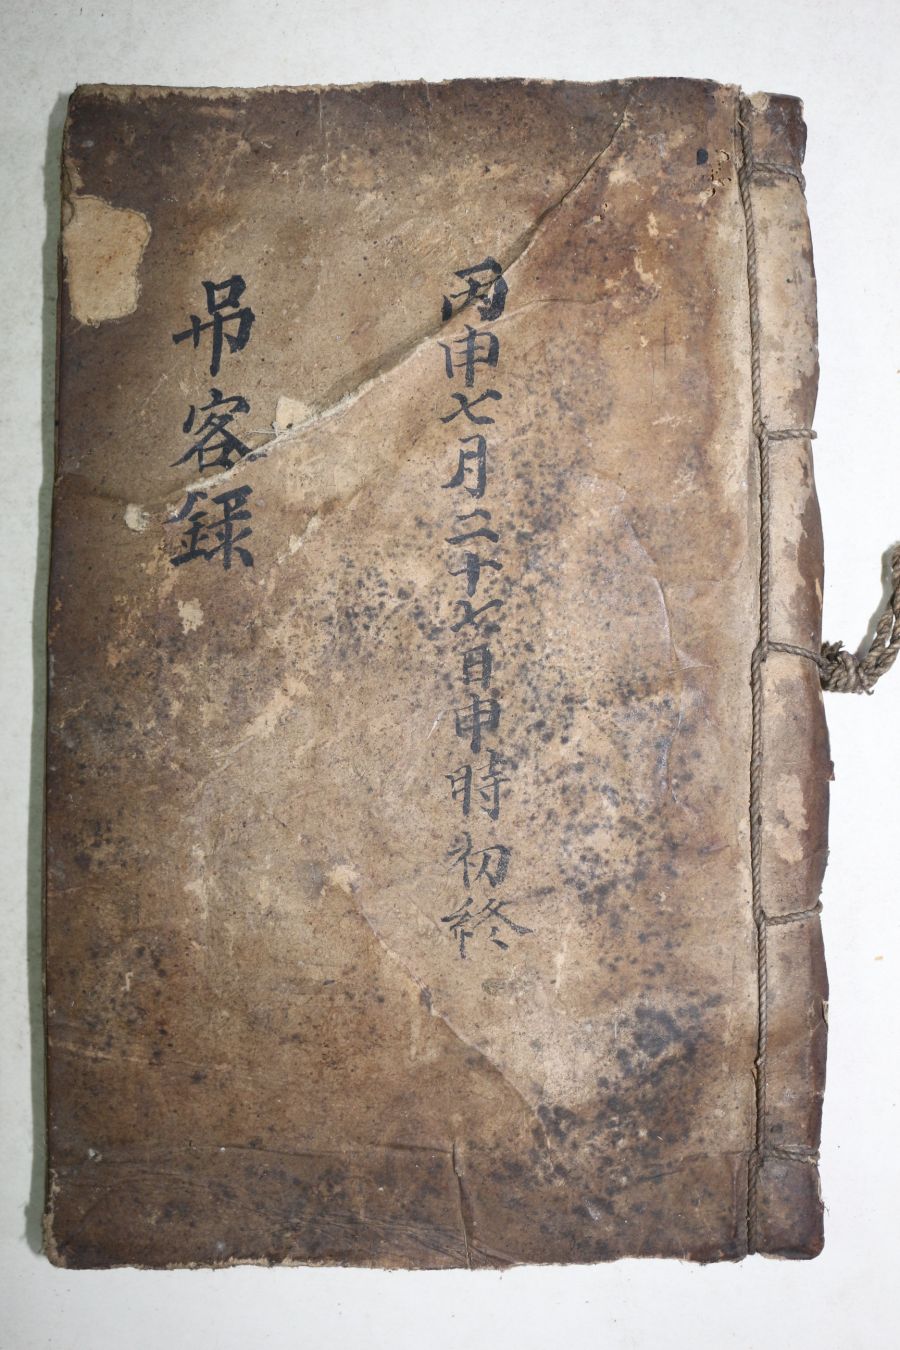 丙申七月二十七日申時初終
吊客錄